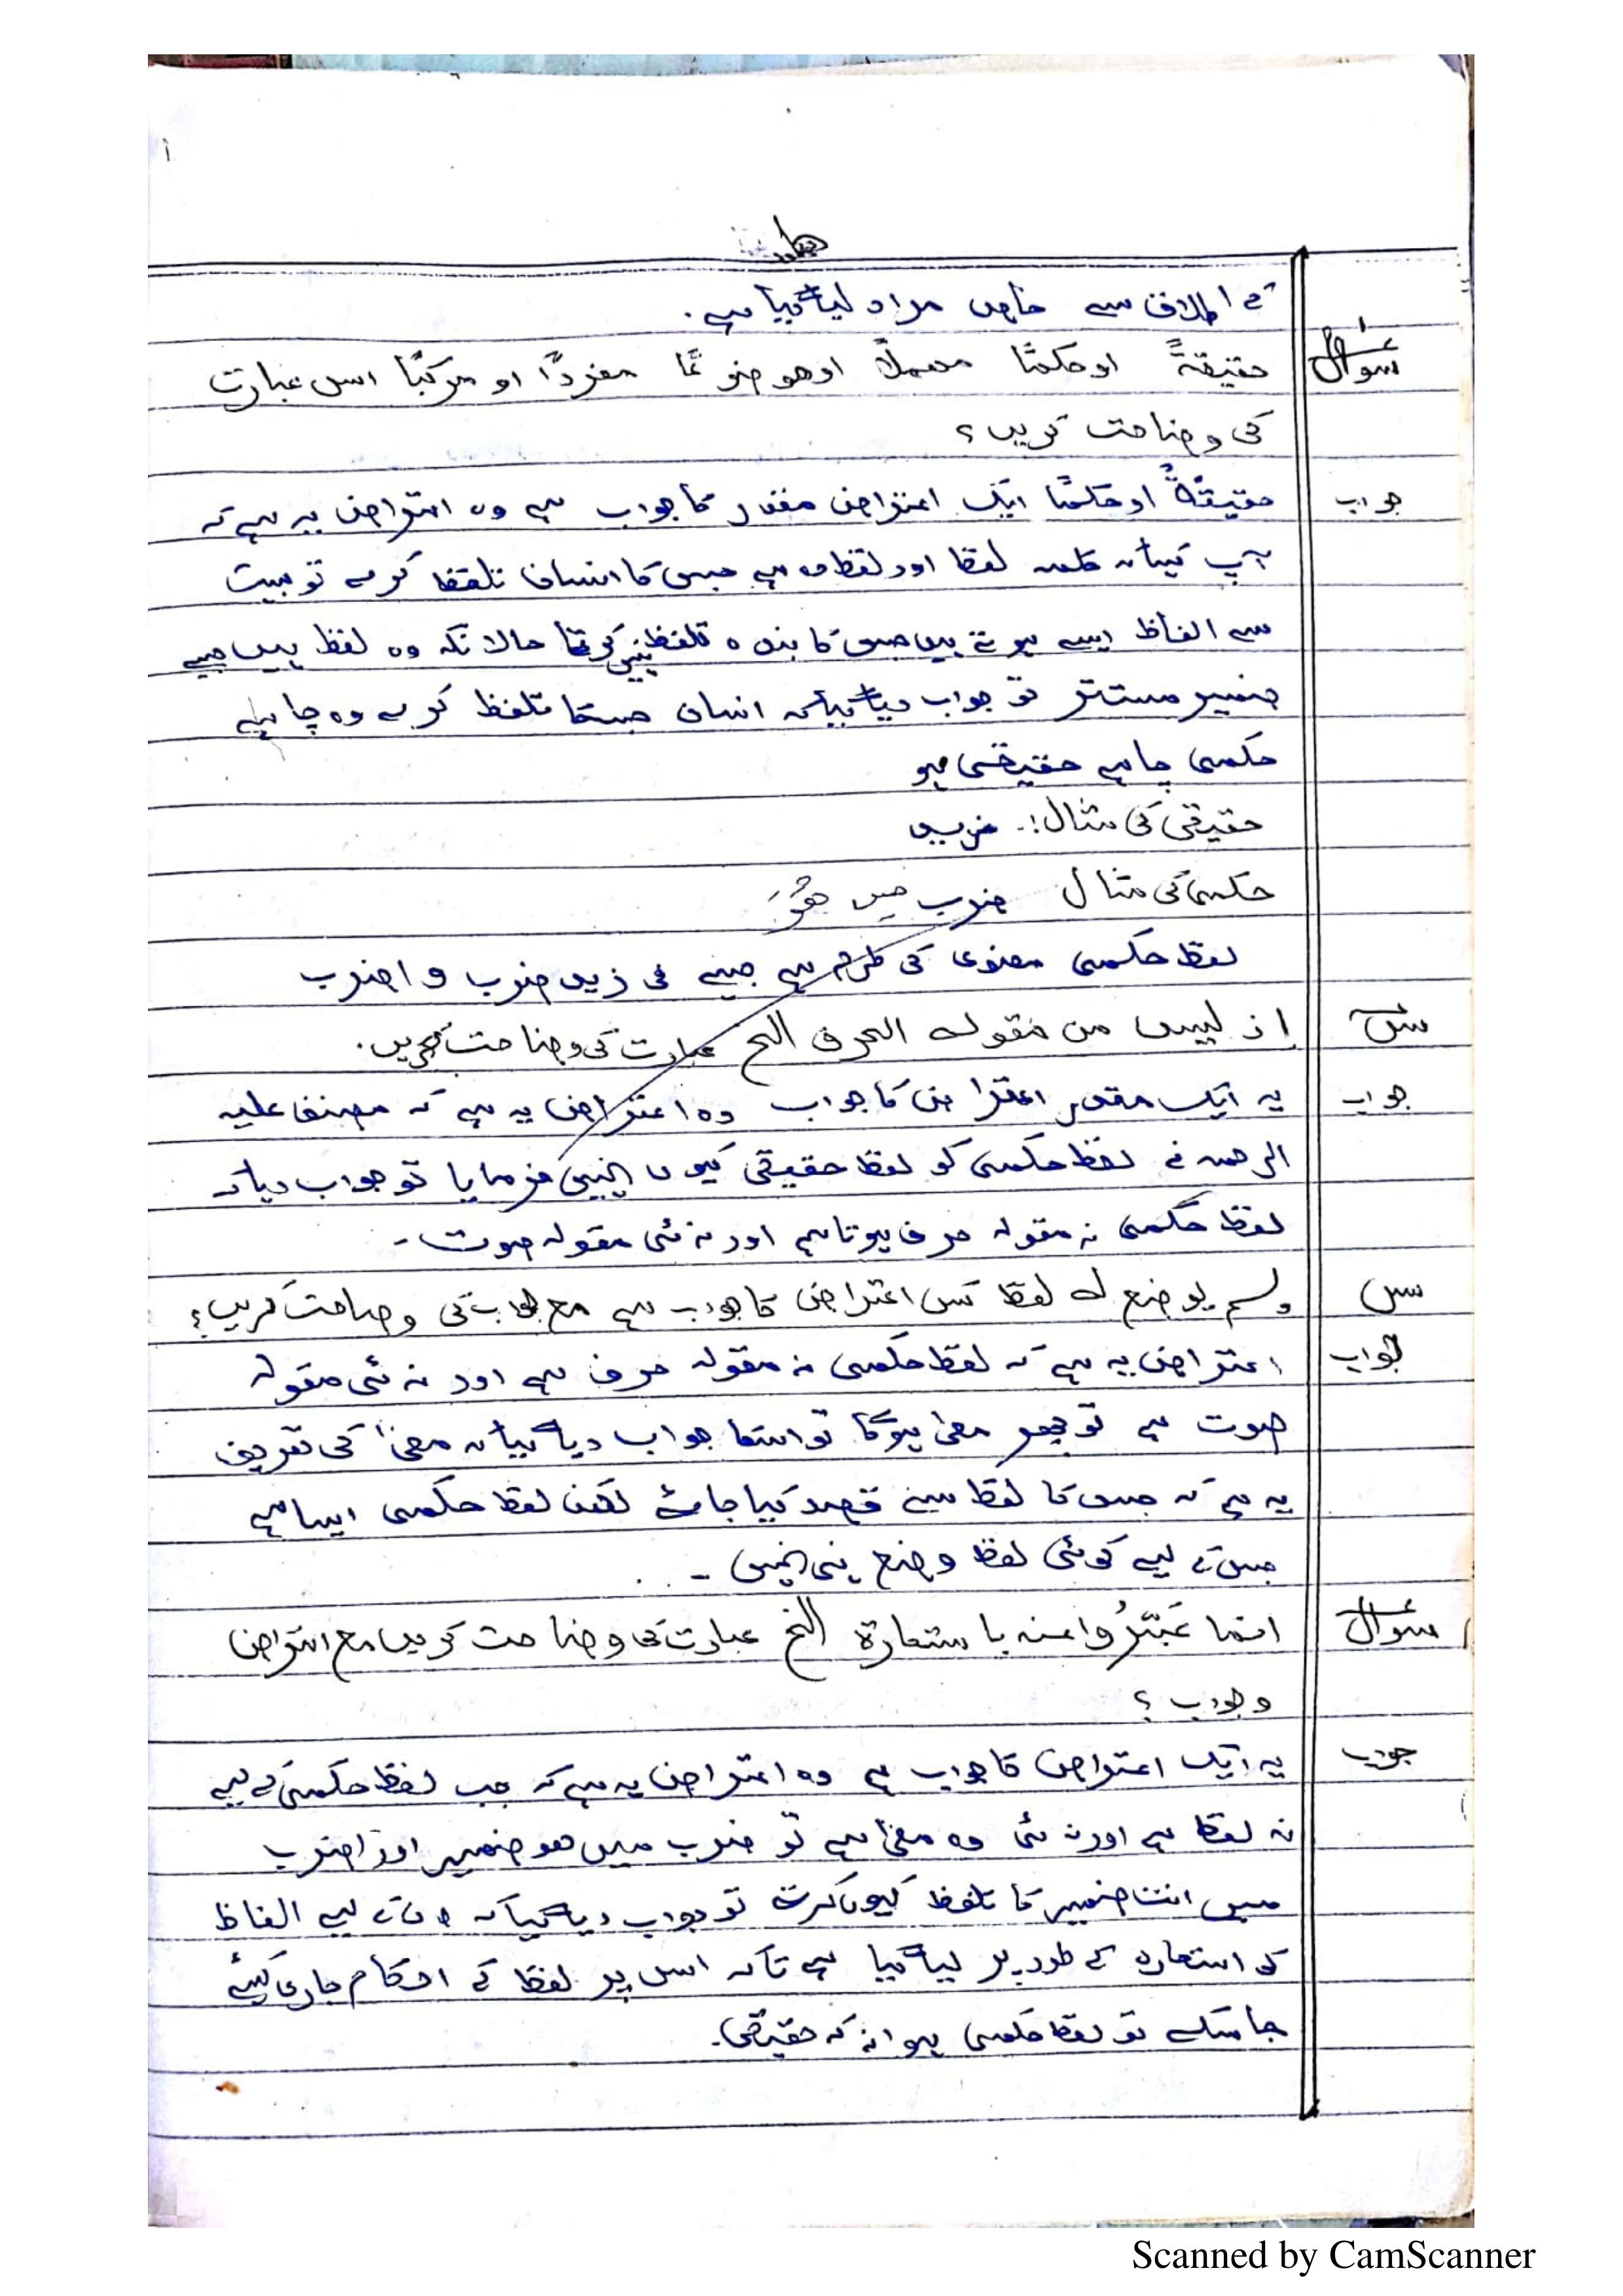 کے اطلاق سے خاص مراد لیا گیا ہے۔
سوال حقیقۃً او حکمًا مہملاً او موضوعًا مفردًا او مرکبًا اس عبارت
کی وضاحت کریں؟
جواب حقیقۃً او حکمًا ایک اعتراض مقدر کا جواب ہے وہ اعتراض یہ ہے کہ
آپ کہا کہ کلمہ لفظ اور لفظ وہ ہے جس کا انسان تلفظ کرے تو بہت
سے الفاظ ایسے ہوتے ہیں جس کا بندہ تلفظ نہیں کرتا حالانکہ وہ لفظ ہیں جیسے
ضمیر مستتر تو جواب دیا گیا کہ انسان جسکا تلفظ کرے وہ چاہے
حکمی چاہے حقیقی ہو
حقیقی کی مثال:۔
حکمی کی مثال ضرب میں ھُوَ
لفظ حکمی معنوی کی طرح ہے جیسے فی زید ضرب و اضرب
س اذ لیس من مقولہ الحرف الخ عبارت کی وضاحت کریں۔
جواب یہ ایک مقدر اعتراض کا جواب وہ اعتراض یہ ہے کہ مصنف علیہ
الرحمہ نے لفظ حکمی کو لفظ حقیقی کیوں نہیں فرمایا تو جواب دیا کہ
لفظ حکمی نہ مقولہ حرف ہوتا ہے اور نہ ئی مقولہ صوت۔
س ولم یوضع لہ لفظ کس اعتراض کا جواب ہے مع جواب کی وضاحت کریں؟
جواب اعتراض یہ ہے کہ لفظ حکمی نہ مقولہ حرف ہے اور نہ ئی مقولہ
صوت ہے تو پھر معنی ہوگا تو اسکا جواب دیا گیا کہ معنیٰ کی تعریف
یہ ہے کہ جس کا لفظ سے قصد کیا جائے لیکن لفظ حکمی ایسا ہے
جس کے لیے کوئی لفظ وضع ہی نہیں ۔
سوال انما عَبَّرُوا عنہ باستعارۃ الخ عبارت کی وضاحت کریں مع اعتراض
و جواب ؟
جواب یہ ایک اعتراض کا جواب ہے وہ اعتراض یہ ہے کہ جب لفظ حکمی کے لیے
نہ لفظ ہے اور نہ ئی وہ معنیٰ ہے تو ضرب میں ھو ضمیر اور اضرب
میں انت ضمیر کا تلفظ کیوں کرتے تو جواب دیا گیا کہ ان کے لیے الفاظ
کو استعارہ کے طور پر لیا گیا ہے تاکہ اس پر لفظ کے احکام جاری کئیے
جا سکے تو لفظ حکمی ہوا نہ کہ حقیقی۔
Scanned by CamScanner